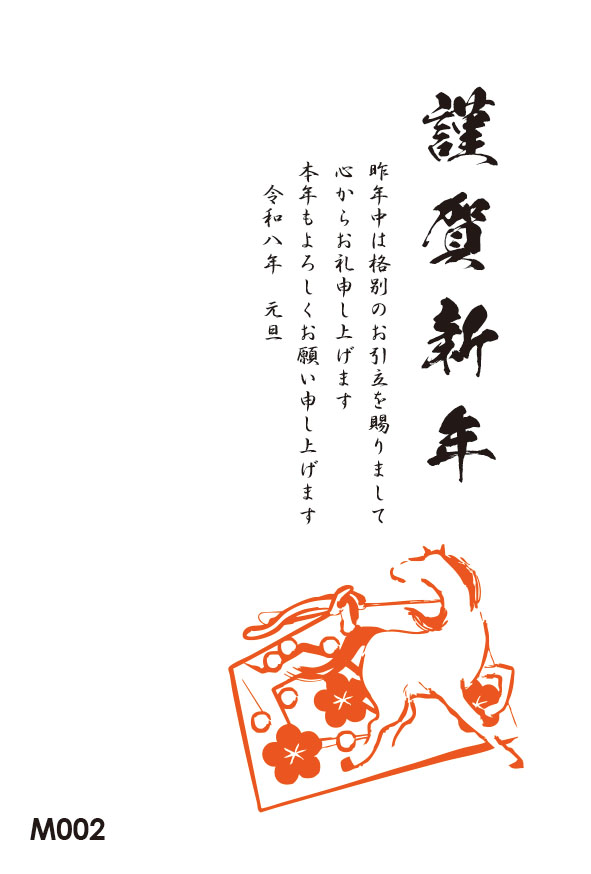 謹賀新年
昨年中は格別のお引立を賜りまして
心からお礼申し上げます
本年もよろしくお願い申し上げます
令和八年　元旦
M002